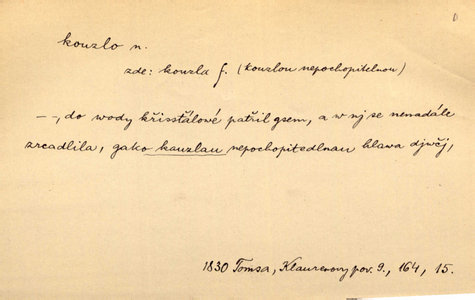 kouzlo n.
zde: kouzla f. (kouzlou nepochopitelnou)
– –, do wody křissťálowé patřil gsem, a w nj se nenadále
zrcadlila, gako kauzlau nepochopitedlnau hlawa djwčj,
1830 Tomsa, Klaurenovy pov. 9., 164, 15.